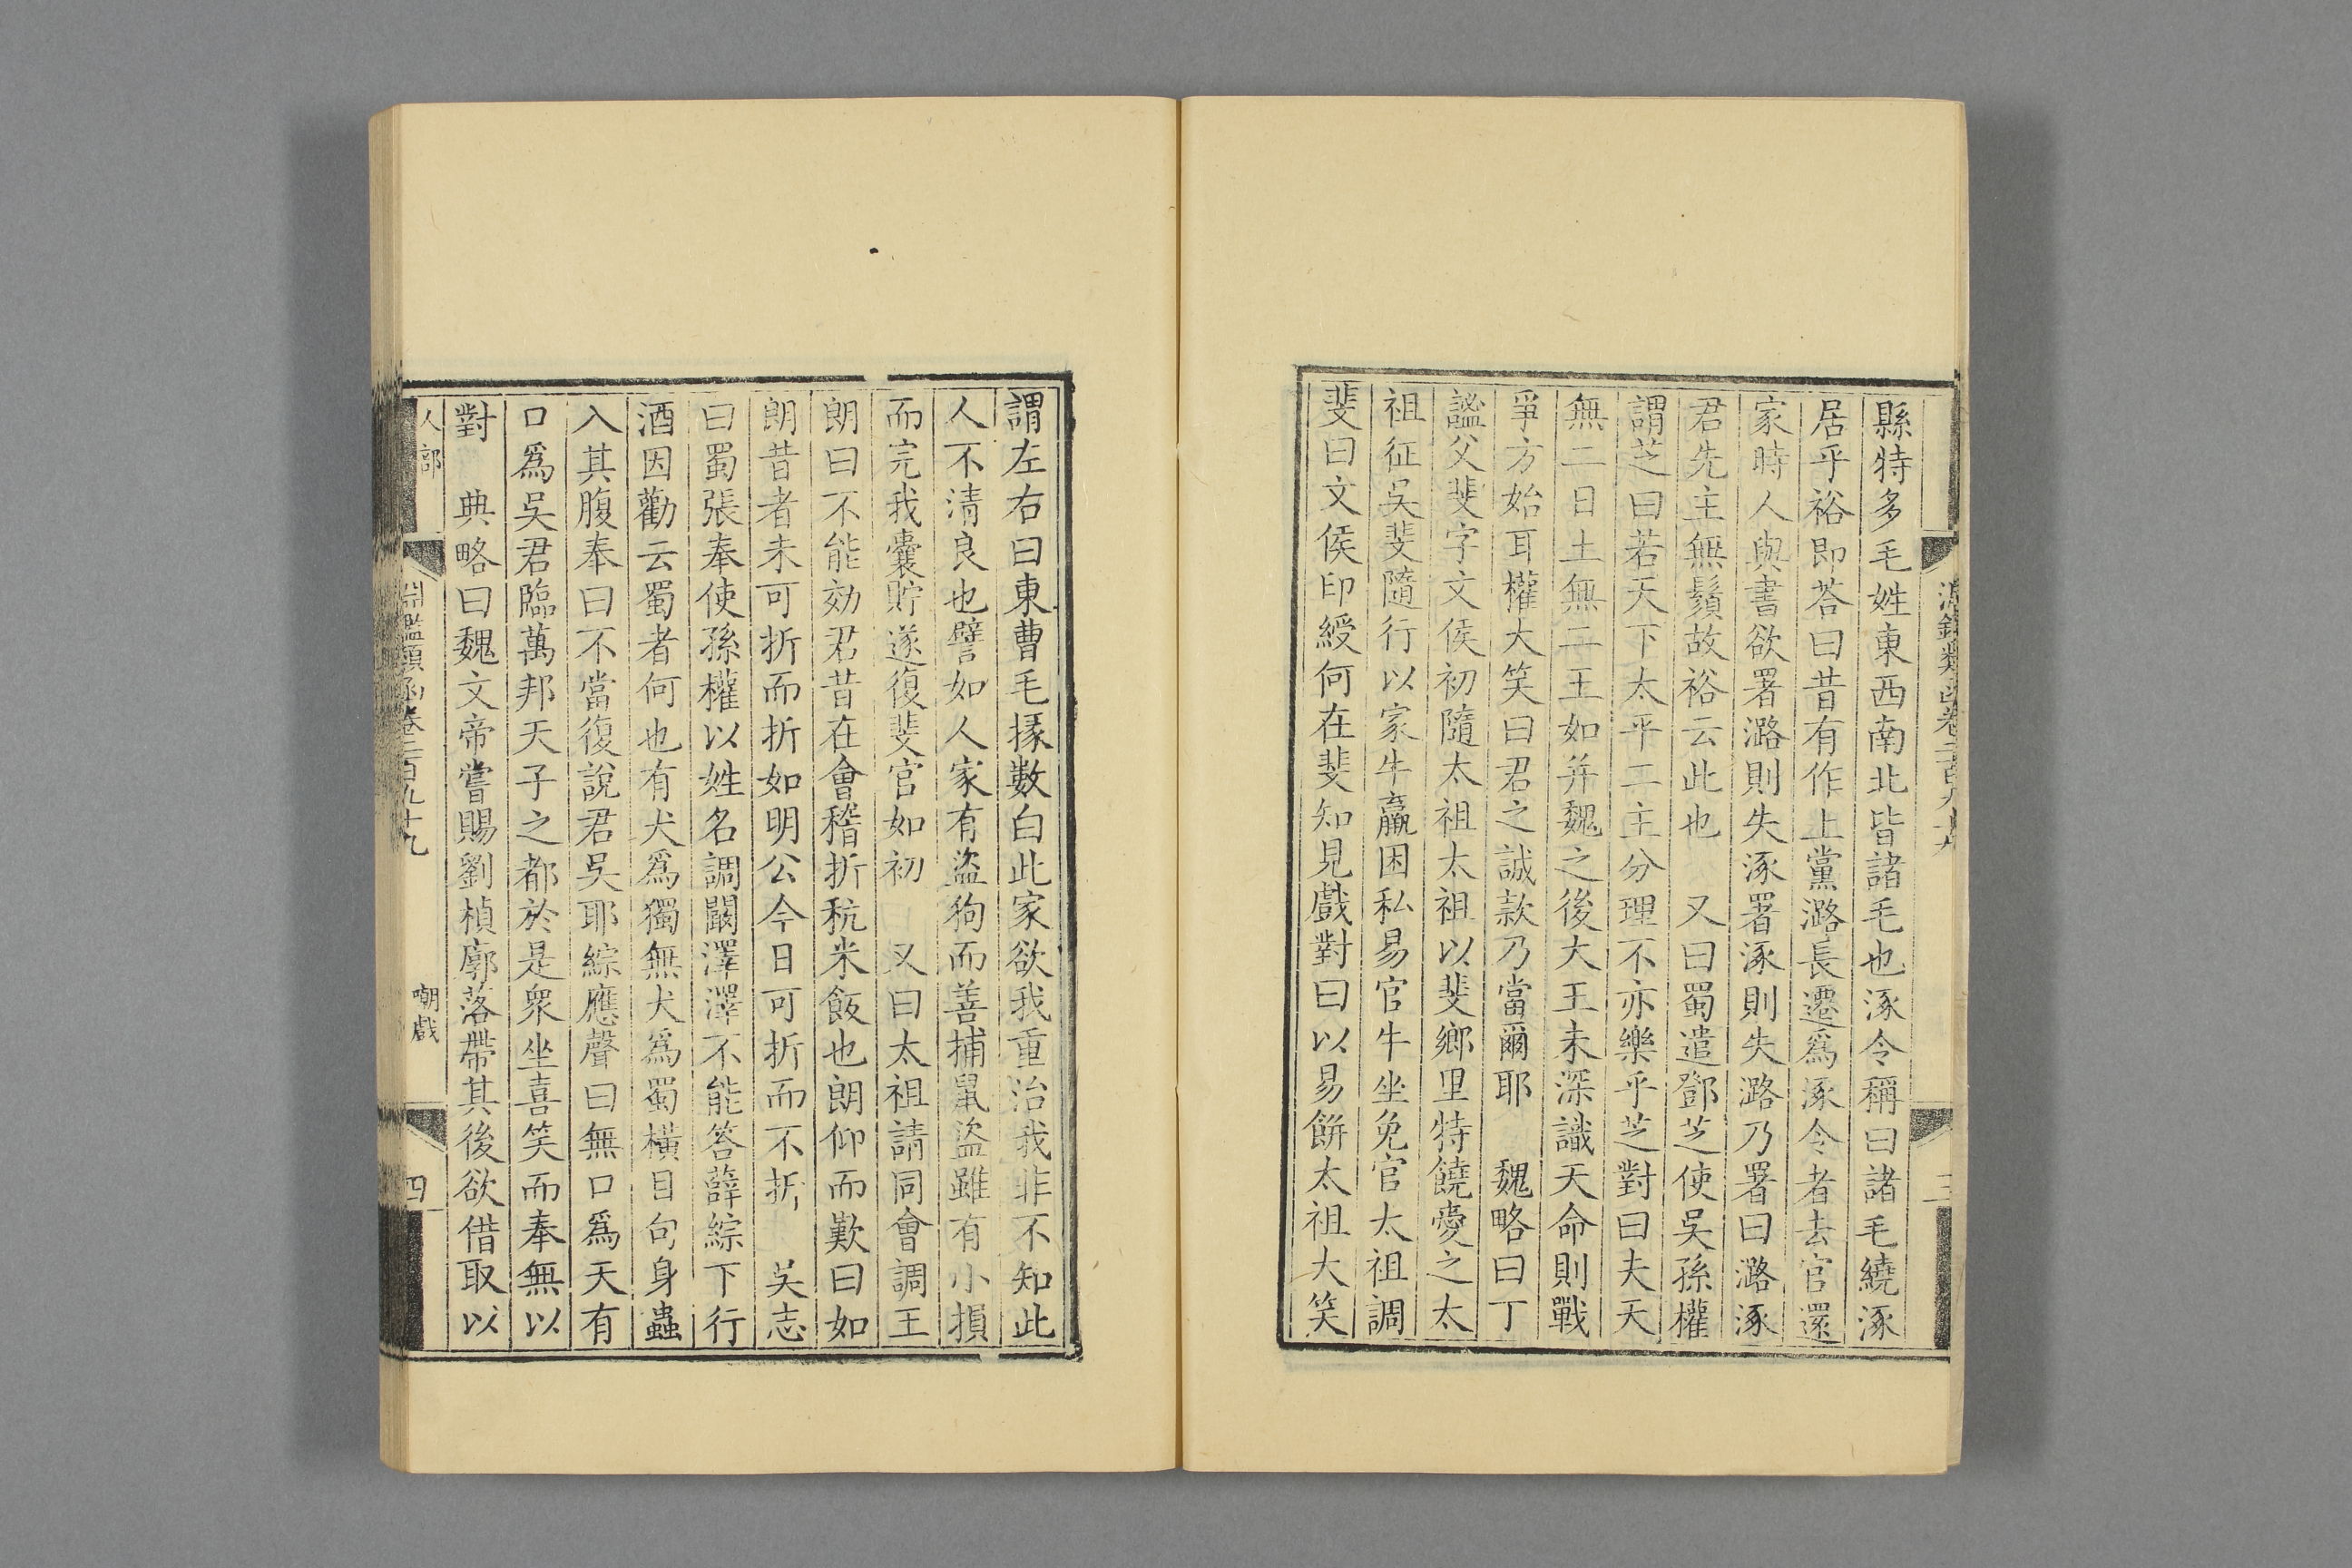 縣特多毛姓東西南北皆諸毛也涿令稱曰諸毛繞涿
居乎裕即荅曰昔有作上黨潞長遷爲涿令者去官還
家時人與書欲署潞則失涿署涿則失潞乃署曰潞涿
君先主無鬚故裕云此也　又曰蜀遣鄧芝使吳孫權
謂芝曰若天下太平二主分理不亦樂乎芝對曰夫天
無二日土無二王如并魏之後大王未深識天命則戰
爭方始耳權大笑曰君之誠款乃當爾耶　魏略曰丁
謐父斐字文侯初隨太祖太祖以斐鄉里特饒愛之太
祖征吳斐隨行以家牛羸困私易官牛坐免官太祖調
斐曰文侯印綬何在斐知見戲對曰以易餅太祖大笑
三
謂左右曰東曹毛掾數白此家欲我重治我非不知此
人不清良也譬如人家有盜狗而善捕鼠盜雖有小損
而完我囊貯遂復斐官如初　又曰太祖請同會調王
朗曰不能効君昔在會稽折秔米飯也朗仰而歎曰如
朗昔者未可折而折如明公今日可折而不折　吳志
曰蜀張奉使孫權以姓名調闞澤澤不能答薛綜下行
酒因勸云蜀者何也有犬爲獨無犬爲蜀橫目句身蟲
入其腹奉曰不當復說君吳耶綜應聲曰無口爲天有
口爲吳君臨萬邦天子之都於是衆坐喜笑而奉無以
對　典略曰魏文帝嘗賜劉楨廓落帶其後欲借取以
人部　淵鑑類函卷二百九十九　嘲戲　四